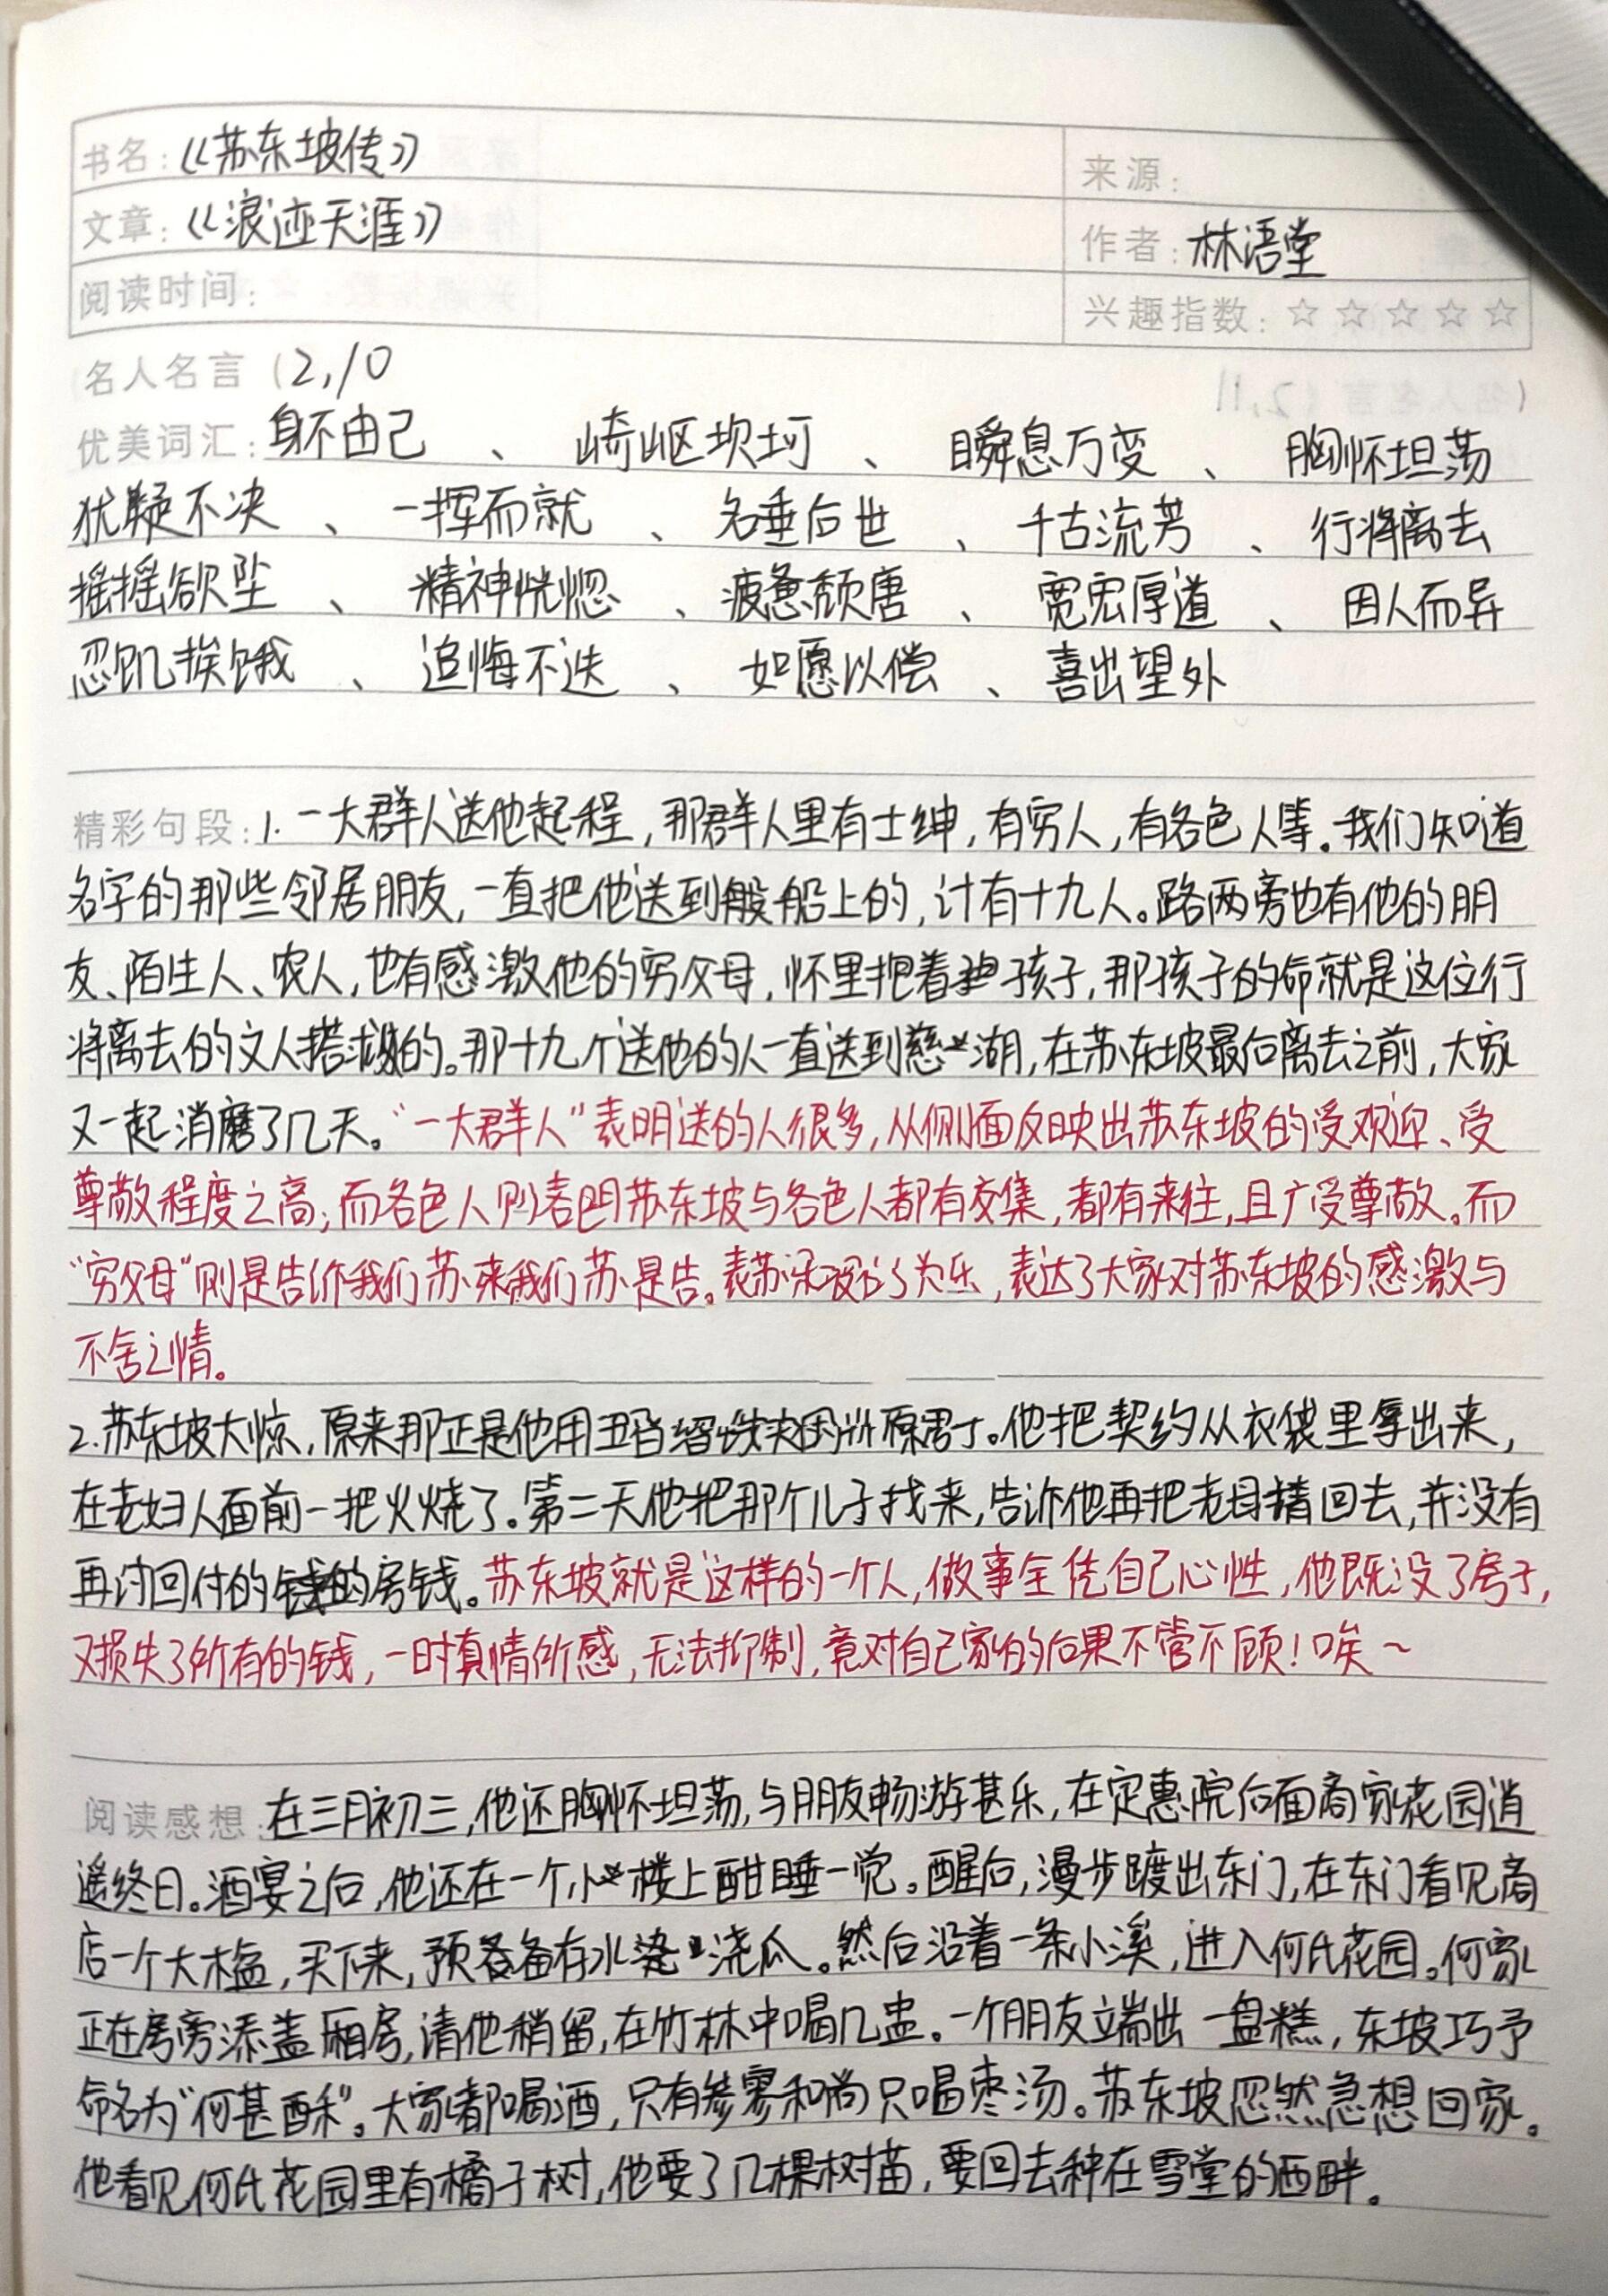 书名：《苏东坡传》
来源：
文章：《浪迹天涯》
作者：林语堂
阅读时间：
兴趣指数：☆☆☆☆☆
名人名言（2,10
优美词汇：身不由己、崎岖坎坷、瞬息万变、胸怀坦荡
犹疑不决、一挥而就、名垂后世、千古流芳、行将离去
摇摇欲坠、精神恍惚、疲惫颓唐、宽宏厚道、因人而异
忍饥挨饿、追悔不迭、如愿以偿、喜出望外
精彩句段：1.一大群人送他起程，那群人里有士绅，有穷人，有各色人等。我们知道
名字的那些邻居朋友，一直把他送到船上的，计有十九人。路两旁也有他的朋
友、陌生人、农人，也有感激他的穷父母，怀里抱着孩子，那孩子的命就是这位行
将离去的文人搭救的。那十九个送他的人一直送到慈湖，在苏东坡最后离去之前，大家
又一起消磨了几天。“一大群人”表明送的人很多，从侧面反映出苏东坡的受欢迎、受
尊敬程度之高；而各色人则表明苏东坡与各色人都有交集，都有来往，且广受尊敬。而
“穷父母”则是告诉我们苏来我们苏是告。表苏为乐，表达了大家对苏东坡的感激与
不舍之情。
2.苏东坡大惊，原来那正是他用五百缗钱买的。他把契约从衣袋里拿出来，
在老妇人面前一把火烧了。第二天他把那个儿子找来，告诉他再把老母请回去，并没有
再讨回付的房钱。苏东坡就是这样的一个人，做事全凭自己心性，他既没了房子，
又损失了所有的钱，一时真情所感，无法抑制，竟对自己家的后果不管不顾！唉～
阅读感想：在三月初三，他还胸怀坦荡，与朋友畅游甚乐，在定惠院后面商家花园逍
遥终日。酒宴之后，他还在一个小楼上酣睡一觉。醒后，漫步踱出东门，在东门看见商
店一个大木盆，买下来，预备存水浇瓜。然后沿着一条小溪，进入何氏花园。何家
正在房旁添盖厢房，请他稍留，在竹林中喝几盅。一个朋友端出一盘糕，东坡巧予
命名为“何甚酥”。大家都喝酒，只有参寥和尚只喝枣汤。苏东坡忽然急想回家。
他看见何氏花园里有橘子树，他要了几棵树苗，要回去种在雪堂的西畔。